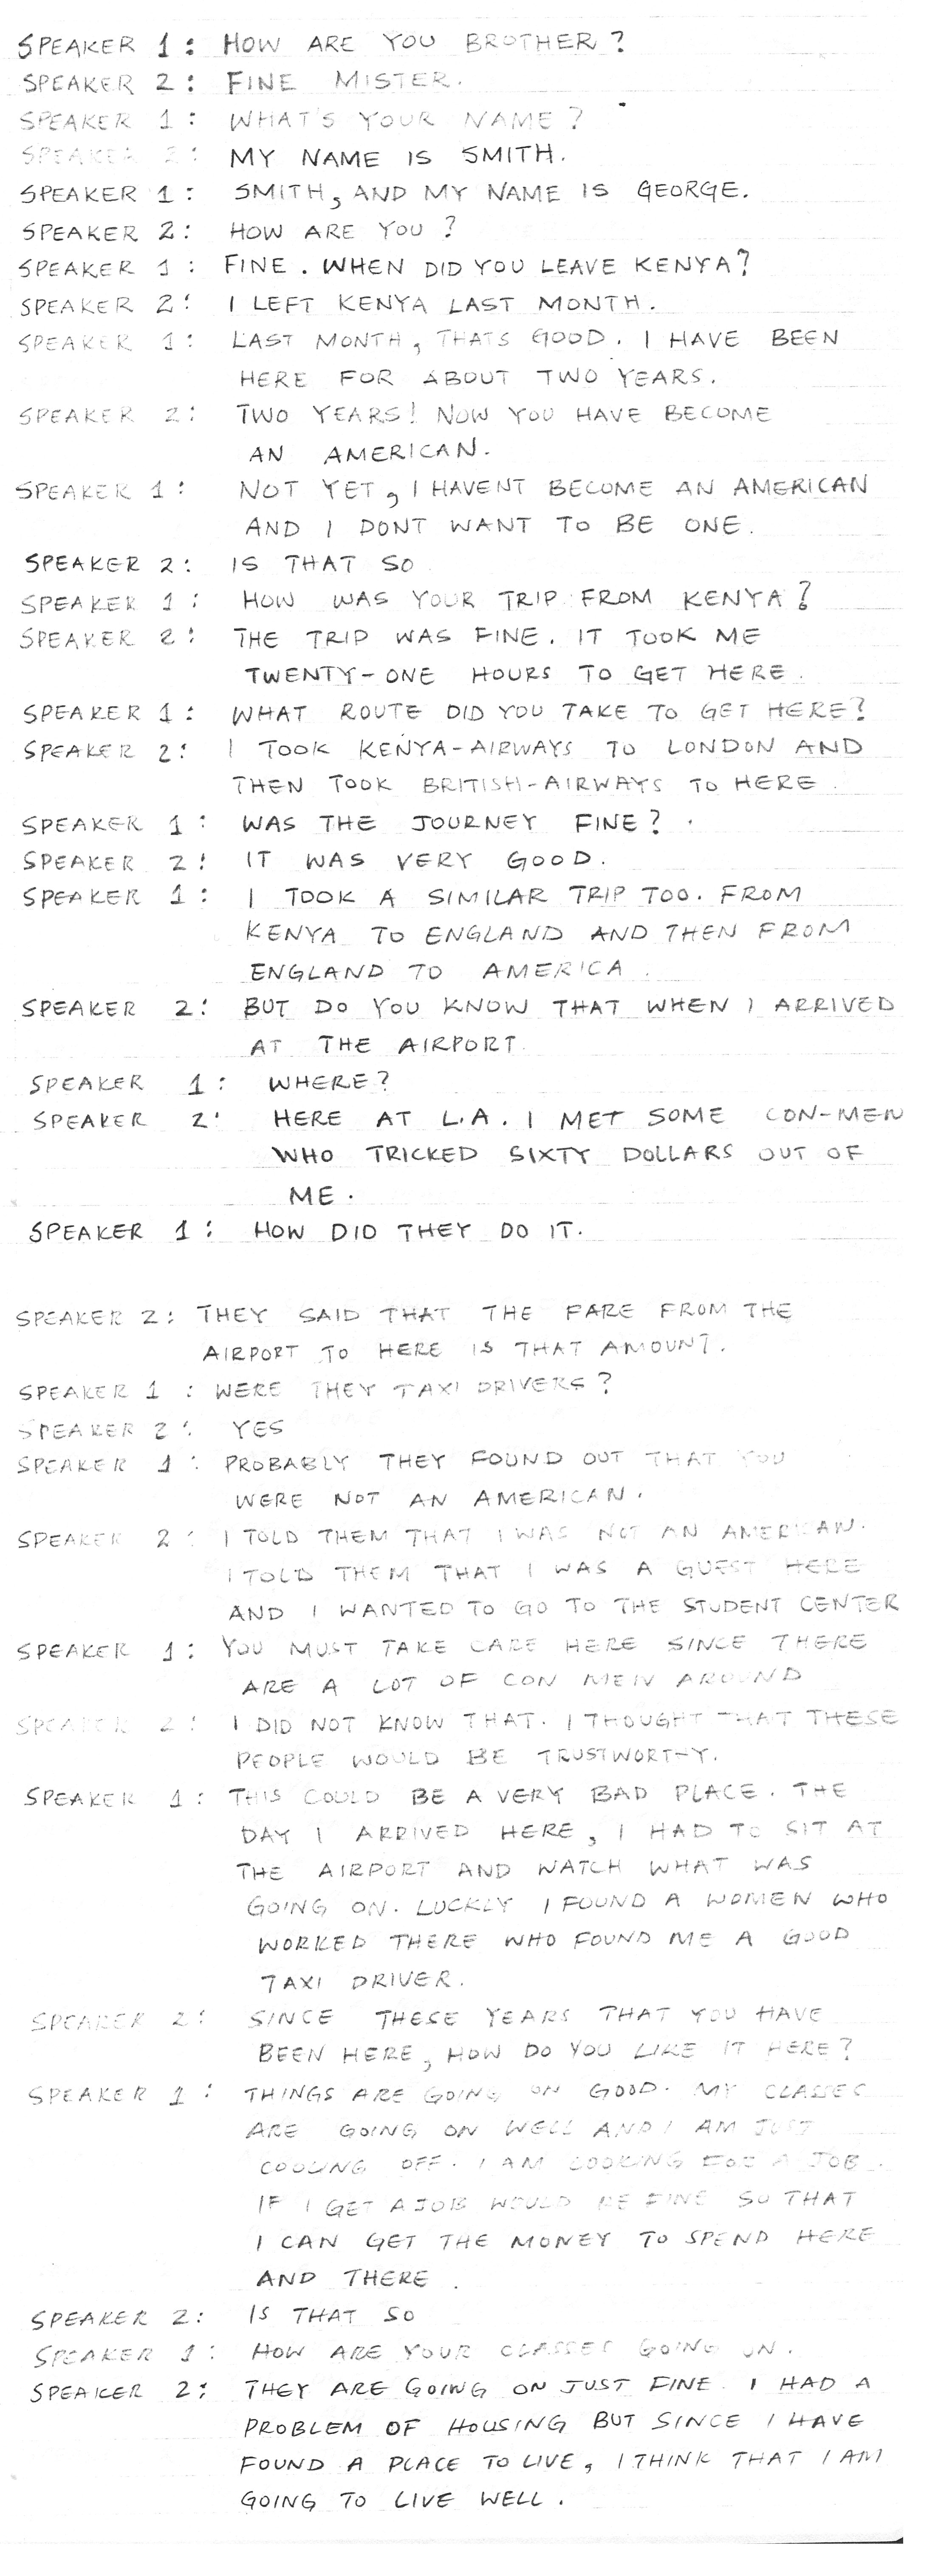 SPEAKER 1: HOW ARE YOU BROTHER?
SPEAKER 2: FINE MISTER.
SPEAKER 1: WHAT'S YOUR NAME?
SPEAKER 2: MY NAME IS SMITH.
SPEAKER 1: SMITH, AND MY NAME IS GEORGE.
SPEAKER 2: HOW ARE YOU?
SPEAKER 1: FINE. WHEN DID YOU LEAVE KENYA?
SPEAKER 2: I LEFT KENYA LAST MONTH.
SPEAKER 1: LAST MONTH, THATS GOOD. I HAVE BEEN
HERE FOR ABOUT TWO YEARS.
SPEAKER 2: TWO YEARS! NOW YOU HAVE BECOME
AN AMERICAN.
SPEAKER 1: NOT YET, I HAVENT BECOME AN AMERICAN
AND I DONT WANT TO BE ONE.
SPEAKER 2: IS THAT SO
SPEAKER 1: HOW WAS YOUR TRIP FROM KENYA?
SPEAKER 2: THE TRIP WAS FINE. IT TOOK ME
TWENTY-ONE HOURS TO GET HERE.
SPEAKER 1: WHAT ROUTE DID YOU TAKE TO GET HERE?
SPEAKER 2: I TOOK KENYA-AIRWAYS TO LONDON AND
THEN TOOK BRITISH-AIRWAYS TO HERE.
SPEAKER 1: WAS THE JOURNEY FINE?
SPEAKER 2: IT WAS VERY GOOD.
SPEAKER 1: I TOOK A SIMILAR TRIP TOO. FROM
KENYA TO ENGLAND AND THEN FROM
ENGLAND TO AMERICA.
SPEAKER 2: BUT DO YOU KNOW THAT WHEN I ARRIVED
AT THE AIRPORT
SPEAKER 1: WHERE?
SPEAKER 2: HERE AT L.A. I MET SOME CON-MEN
WHO TRICKED SIXTY DOLLARS OUT OF
ME.
SPEAKER 1: HOW DID THEY DO IT.
SPEAKER 2: THEY SAID THAT THE FARE FROM THE
AIRPORT TO HERE IS THAT AMOUNT.
SPEAKER 1: WERE THEY TAXI DRIVERS?
SPEAKER 2: YES
SPEAKER 1: PROBABLY THEY FOUND OUT THAT YOU
WERE NOT AN AMERICAN.
SPEAKER 2: I TOLD THEM THAT I WAS NOT AN AMERICAN.
I TOLD THEM THAT I WAS A GUEST HERE
AND I WANTED TO GO TO THE STUDENT CENTER
SPEAKER 1: YOU MUST TAKE CARE HERE SINCE THERE
ARE A LOT OF CON MEN AROUND
SPEAKER 2: I DID NOT KNOW THAT. I THOUGHT THAT THESE
PEOPLE WOULD BE TRUSTWORTHY.
SPEAKER 1: THIS COULD BE A VERY BAD PLACE. THE
DAY I ARRIVED HERE, I HAD TO SIT AT
THE AIRPORT AND WATCH WHAT WAS
GOING ON. LUCKLY I FOUND A WOMEN WHO
WORKED THERE WHO FOUND ME A GOOD
TAXI DRIVER.
SPEAKER 2: SINCE THESE YEARS THAT YOU HAVE
BEEN HERE, HOW DO YOU LIKE IT HERE?
SPEAKER 1: THINGS ARE GOING ON GOOD. MY CLASSES
ARE GOING ON WELL AND I AM JUST
COOLING OFF. I AM LOOKING FOR A JOB.
IF I GET A JOB WOULD BE FINE SO THAT
I CAN GET THE MONEY TO SPEND HERE
AND THERE.
SPEAKER 2: IS THAT SO
SPEAKER 1: HOW ARE YOUR CLASSES GOING ON.
SPEAKER 2: THEY ARE GOING ON JUST FINE. I HAD A
PROBLEM OF HOUSING BUT SINCE I HAVE
FOUND A PLACE TO LIVE, I THINK THAT I AM
GOING TO LIVE WELL.